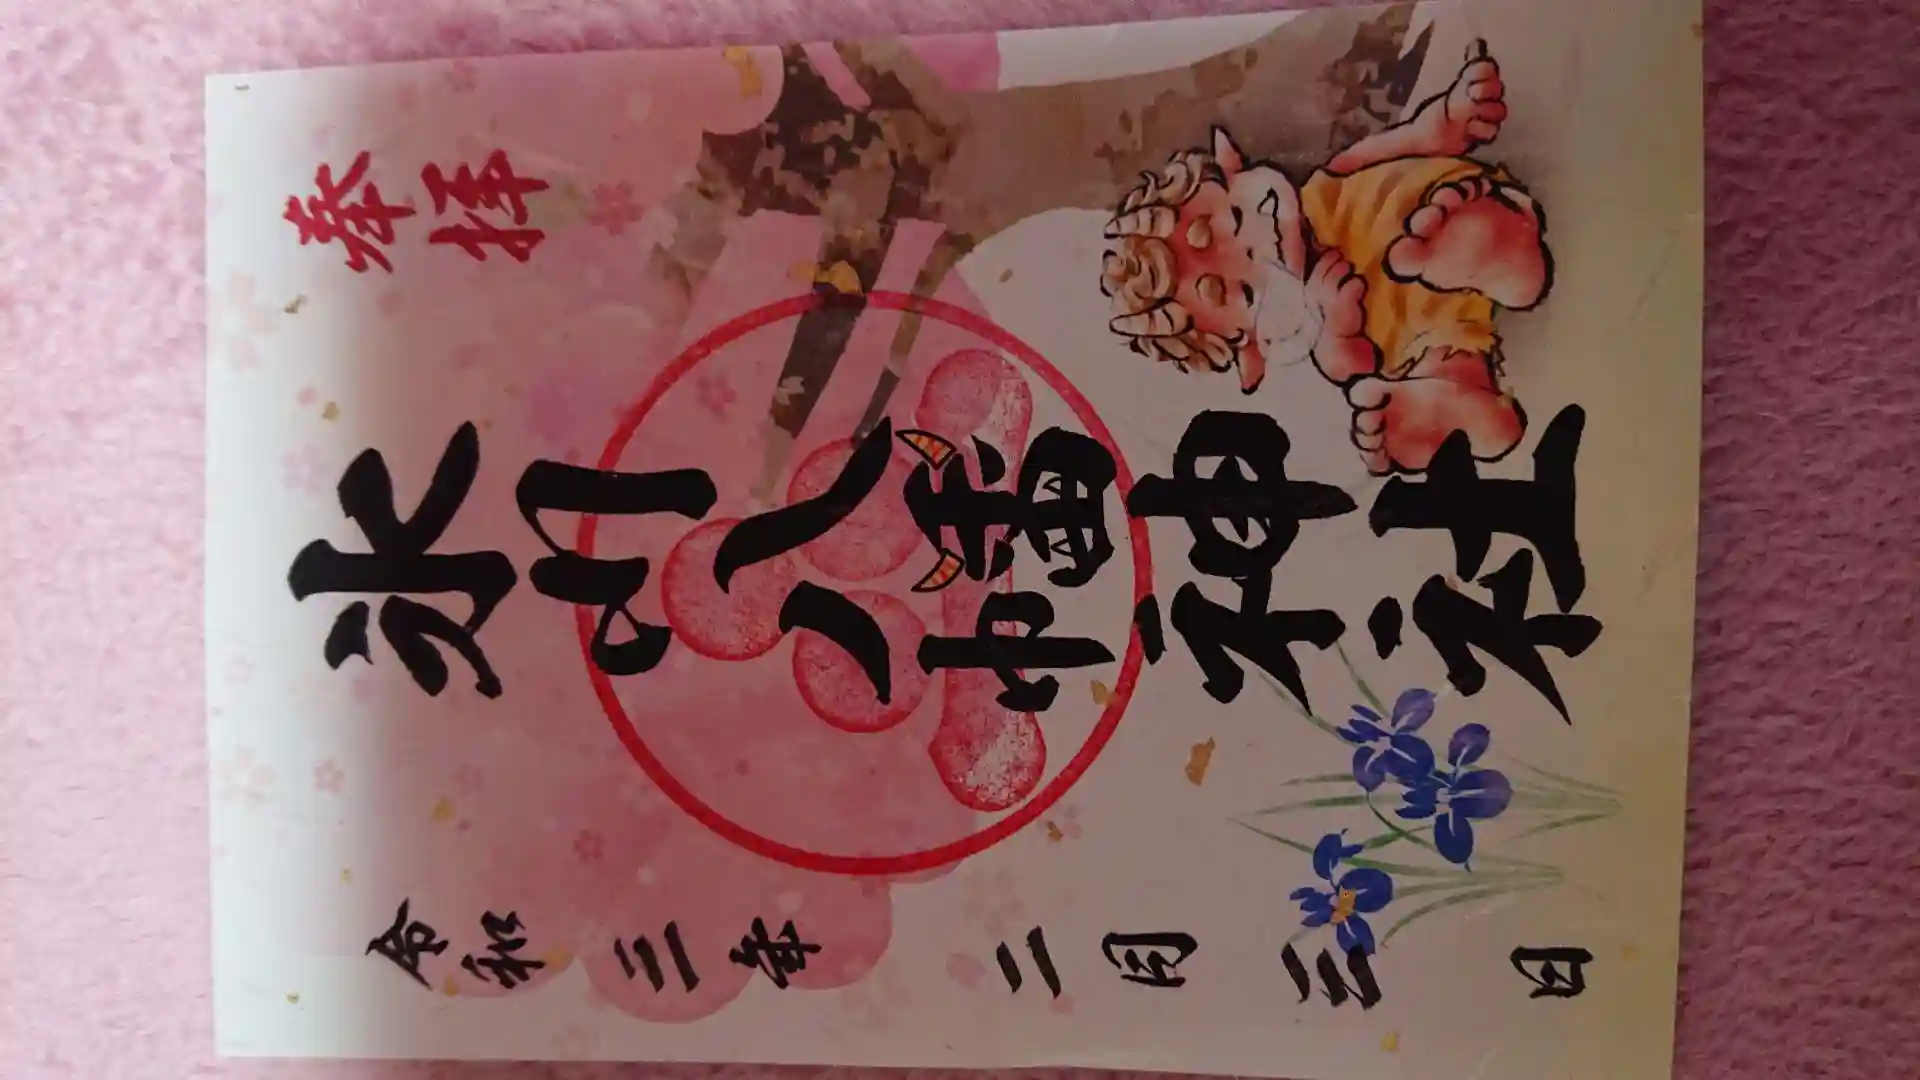 奉拝
氷川八幡神社
令和三年二月三日